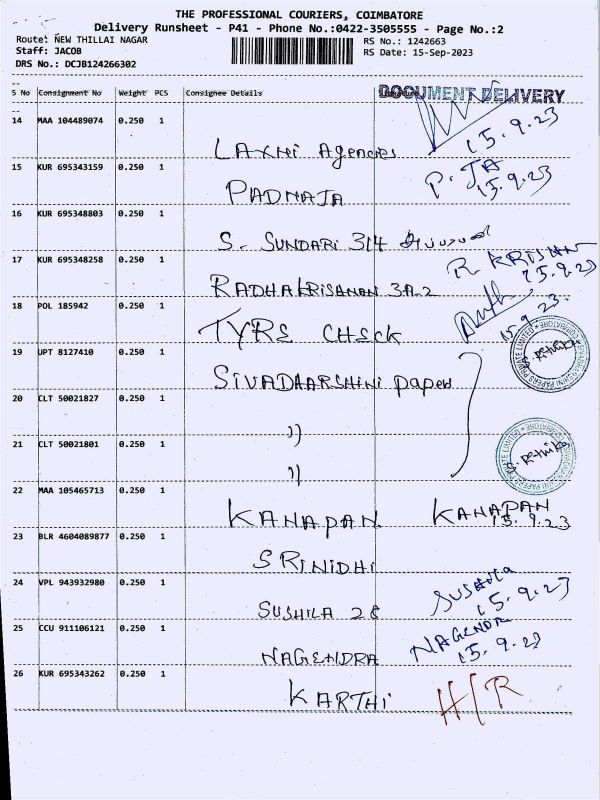 THE PROFESSIONAL COURIERS, COIMBATORE
Delivery Runsheet - P41 - Phone No.:0422-3505555 - Page No.:2
Route: NEW THILLAI NAGAR
Staff: JACOB
DRS No.: DCJB124266302
RS No.: 1242663
RS Date: 15-Sep-2023
S No Consignment No Weight PCS Consignee Details
DOCUMENT DELIVERY
14 MAA 104489074 0.250 1 LAXMI Agencies 15.9.23
15 KUR 695343159 0.250 1 PADMAJA P.JA 15.9.23
16 KUR 695348803 0.250 1 S. SUNDARI 314
17 KUR 695348258 0.250 1 RADHAKRISANAN 3A.2 R KRISHN 15.9.23
18 POL 185942 0.250 1 TYRE CHECK 15.9.23
19 UPT 8127410 0.250 1 SIVADHARSHINI papers
20 CLT 50021827 0.250 1 ))
21 CLT 50021801 0.250 1 ))
22 MAA 105465713 0.250 1 KANAPAN KANAPAN 15.9.23
23 BLR 4604089877 0.250 1 SRINIDHI
24 VPL 943932980 0.250 1 SUSHILA 2C SUSHILA 15.9.23
25 CCU 911106121 0.250 1 NAGENDRA NAGENDR 15.9.23
26 KUR 695343262 0.250 1 KARTHI H/R